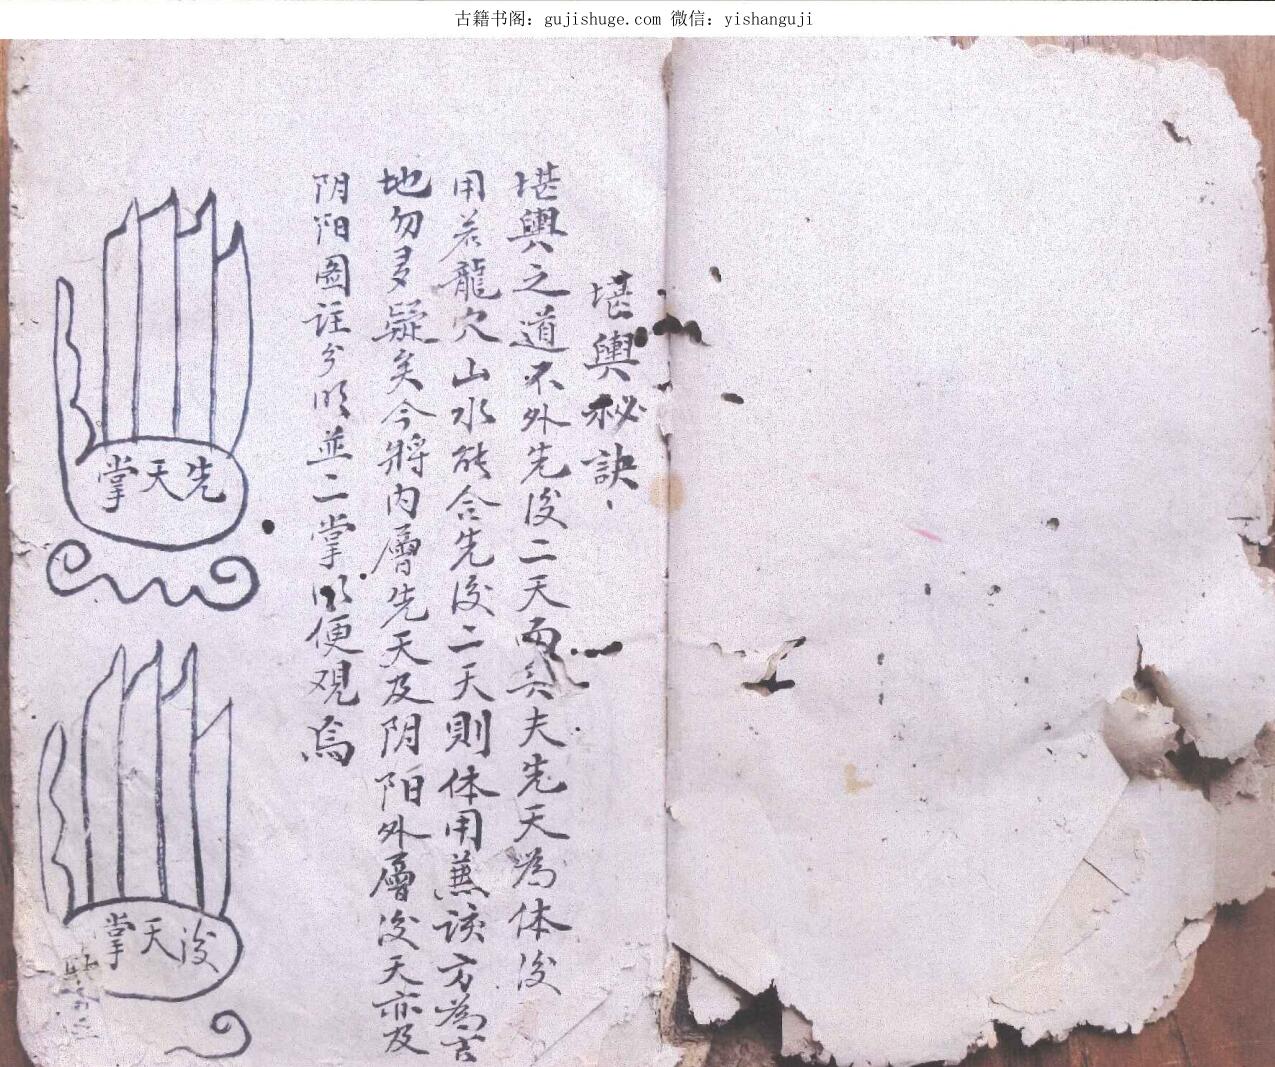 古籍书阁：gujishuge.com 微信：yishanguji
堪輿秘訣
堪輿之道不外先後二天而矣夫先天為体後
用若龍穴山水能合先後二天則体用兼该方為吉
地勿多疑矣今將内層先天及阴阳外層後天亦及
阴阳圖註分明並二掌明便观焉
先天掌
後天掌